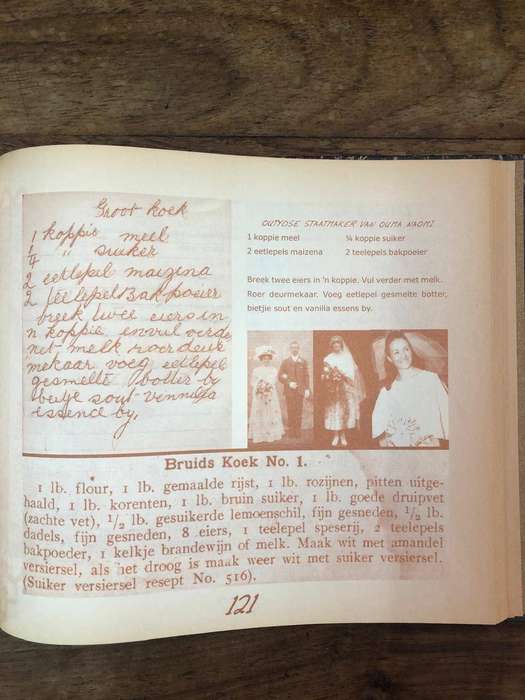 Groot Koek
1 koppie meel
1/4 " suiker
2 eetlepel maizena
2 teelepel Bakpoeier
breek twee eiers in
'n koppie en vul verder
met melk roer deur
mekaar voeg eetlepel
gesmelte botter by
beitje sout vennilla
essence by,
OUTYDSE STAATMAKER VAN OUMA NAOMI
1 koppie meel ¼ koppie suiker
2 eetlepels maizena 2 teelepels bakpoeier
Breek twee eiers in 'n koppie. Vul verder met melk.
Roer deurmekaar. Voeg eetlepel gesmelte botter,
bietjie sout en vanilla essens by.
Bruids Koek No. 1.
1 lb. flour, 1 lb. gemaalde rijst, 1 lb. rozijnen, pitten uitge-
haald, 1 lb. korenten, 1 lb. bruin suiker, 1 lb. goede druipvet
(zachte vet), 1/2 lb. gesuikerde lemoenschil, fijn gesneden, 1/2 lb.
dadels, fijn gesneden, 8 eiers, 1 teelepel speserij, 2 teelepels
bakpoeder, 1 kelkje brandewijn of melk. Maak wit met amandel
versiersel, als het droog is maak weer wit met suiker versiersel.
(Suiker versiersel resept No. 516).
121